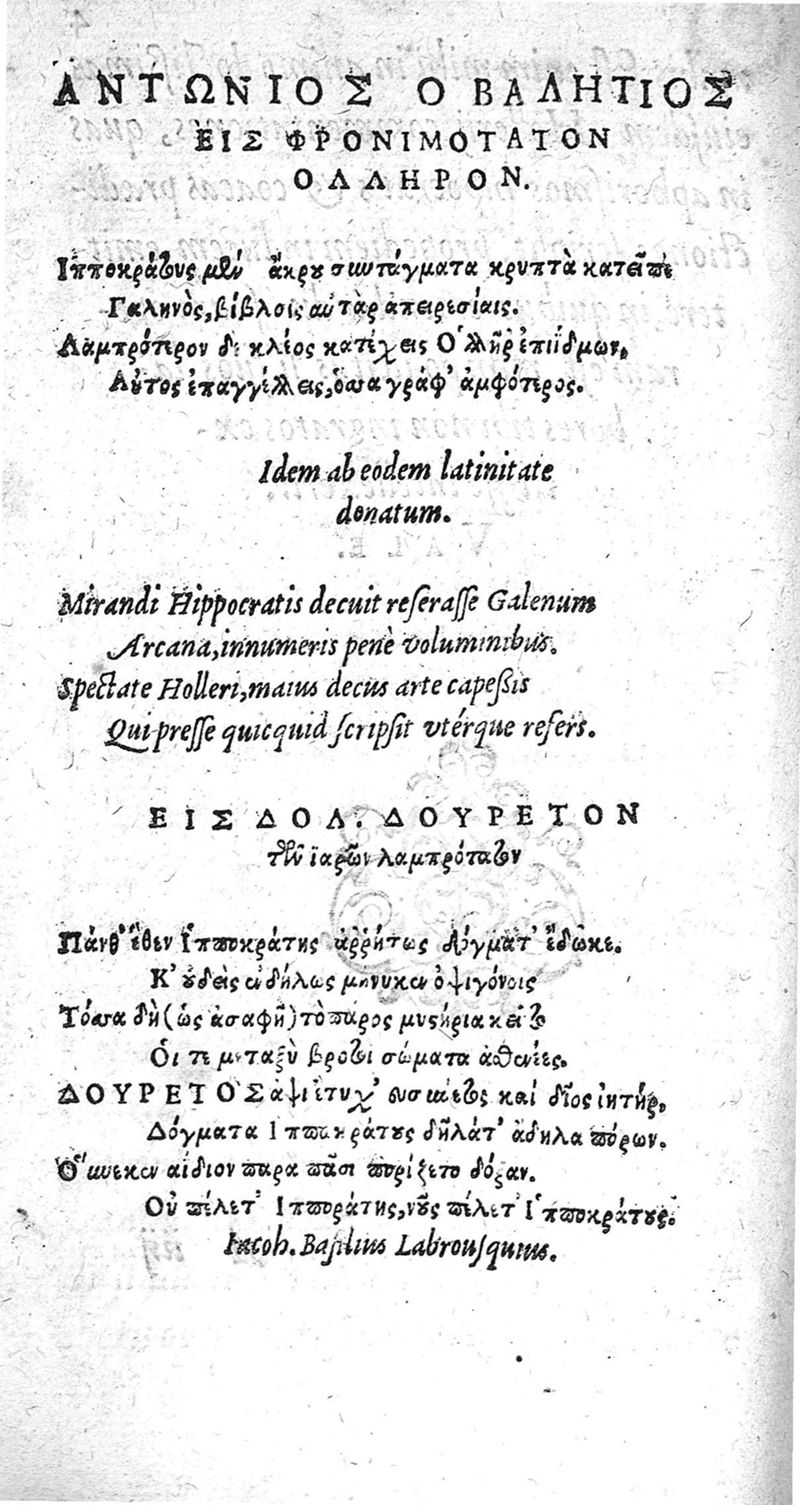 ΑΝΤΩΝΙΟΣ Ο ΒΑΛΗΤΙΟΣ
ΕΙΣ ΦΡΟΝΙΜΟΤΑΤΟΝ
ΟΛΛΗΡΟΝ.
Ιπποκράτους μὲν ἄκρου συντάγματα κρυπτὰ κατεῖπε
Γαληνὸς, βίβλοις αὐτὰρ ἀπειρεσίαις.
Λαμπρότερον δὲ κλέος κατέχεις Ὀλλῆρ ἐπιίδμων,
Αὐτος ἐπαγγέλλεις, ὅσσα γράφ' ἀμφότερος.
Idem ab eodem latinitate
donatum.
Mirandi Hippocratis decuit reserasse Galenum
Arcana, innumeris penè voluminibus.
Spectate Holleri, maius decus arte capessis
Qui presse quicquid scripsit vtérque refers.
ΕΙΣ ΔΟΛ. ΔΟΥΡΕΤΟΝ
τῶν ἰατρῶν λαμπρότατον
Πάνθ' ἕθεν Ἱπποκράτης ἀῤῥήτως δόγματ' ἔδωκε.
Κ' οὐδεὶς ἀδήλως μήνυκεν ὀψιγόνοις
Τόσσα δὴ (ὡς ἀσαφῆ) τὸ πάρος μυστήρια κεῖτο
Οἵ τε μεταξὺ βροτοὶ σώματα ἀσθενέες.
ΔΟΥΡΕΤΟΣ ἀψ καὶ δῖος ἰητήρ,
Δόγματα Ἱπποκράτους δηλάτ' ἄδηλα πόρων.
Οὕνεκεν αἴδιον παρα πᾶσι πορίζετο δόξαν.
Οὐ πέλετ' Ιπποράτης, νοῦς πέλετ' Ἱπποκράτους.
Iacob. Basilius Labrousquius.